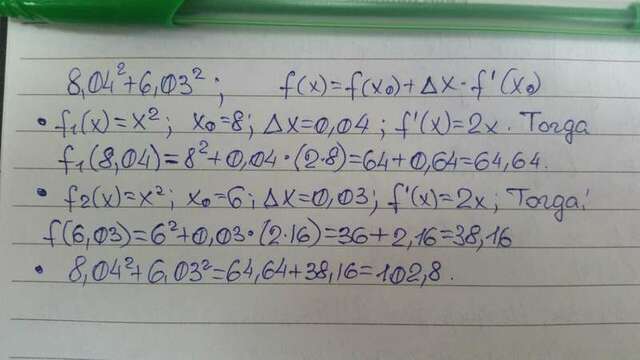 8,04²+6,03²; f(x)=f(x₀)+Δx·f'(x₀)
• f₁(x)=x²; x₀=8; Δx=0,04; f'(x)=2x. Тогда
f₁(8,04)=8²+0,04·(2·8)=64+0,64=64,64.
• f₂(x)=x²; x₀=6; Δx=0,03; f'(x)=2x; Тогда:
f(6,03)=6²+0,03·(2·16)=36+2,16=38,16
• 8,04²+6,03²=64,64+38,16=102,8.